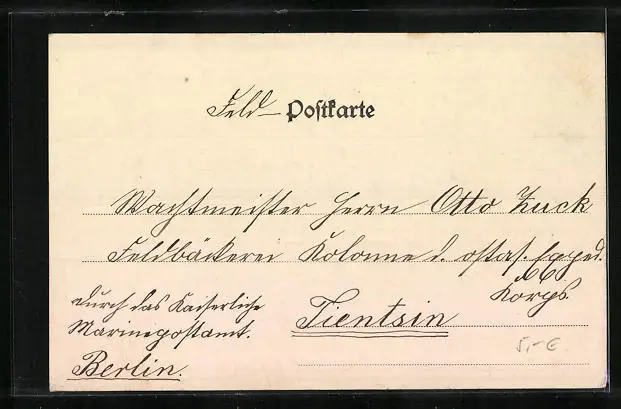 Feld-Postkarte
Wachtmeister Herrn Otto Zuck
Feldbäckerei Kolonne d. ostas. Exped.
Korps.
durch das Kaiserliche
Marinepostamt.
Berlin.
Tientsin
5,- €